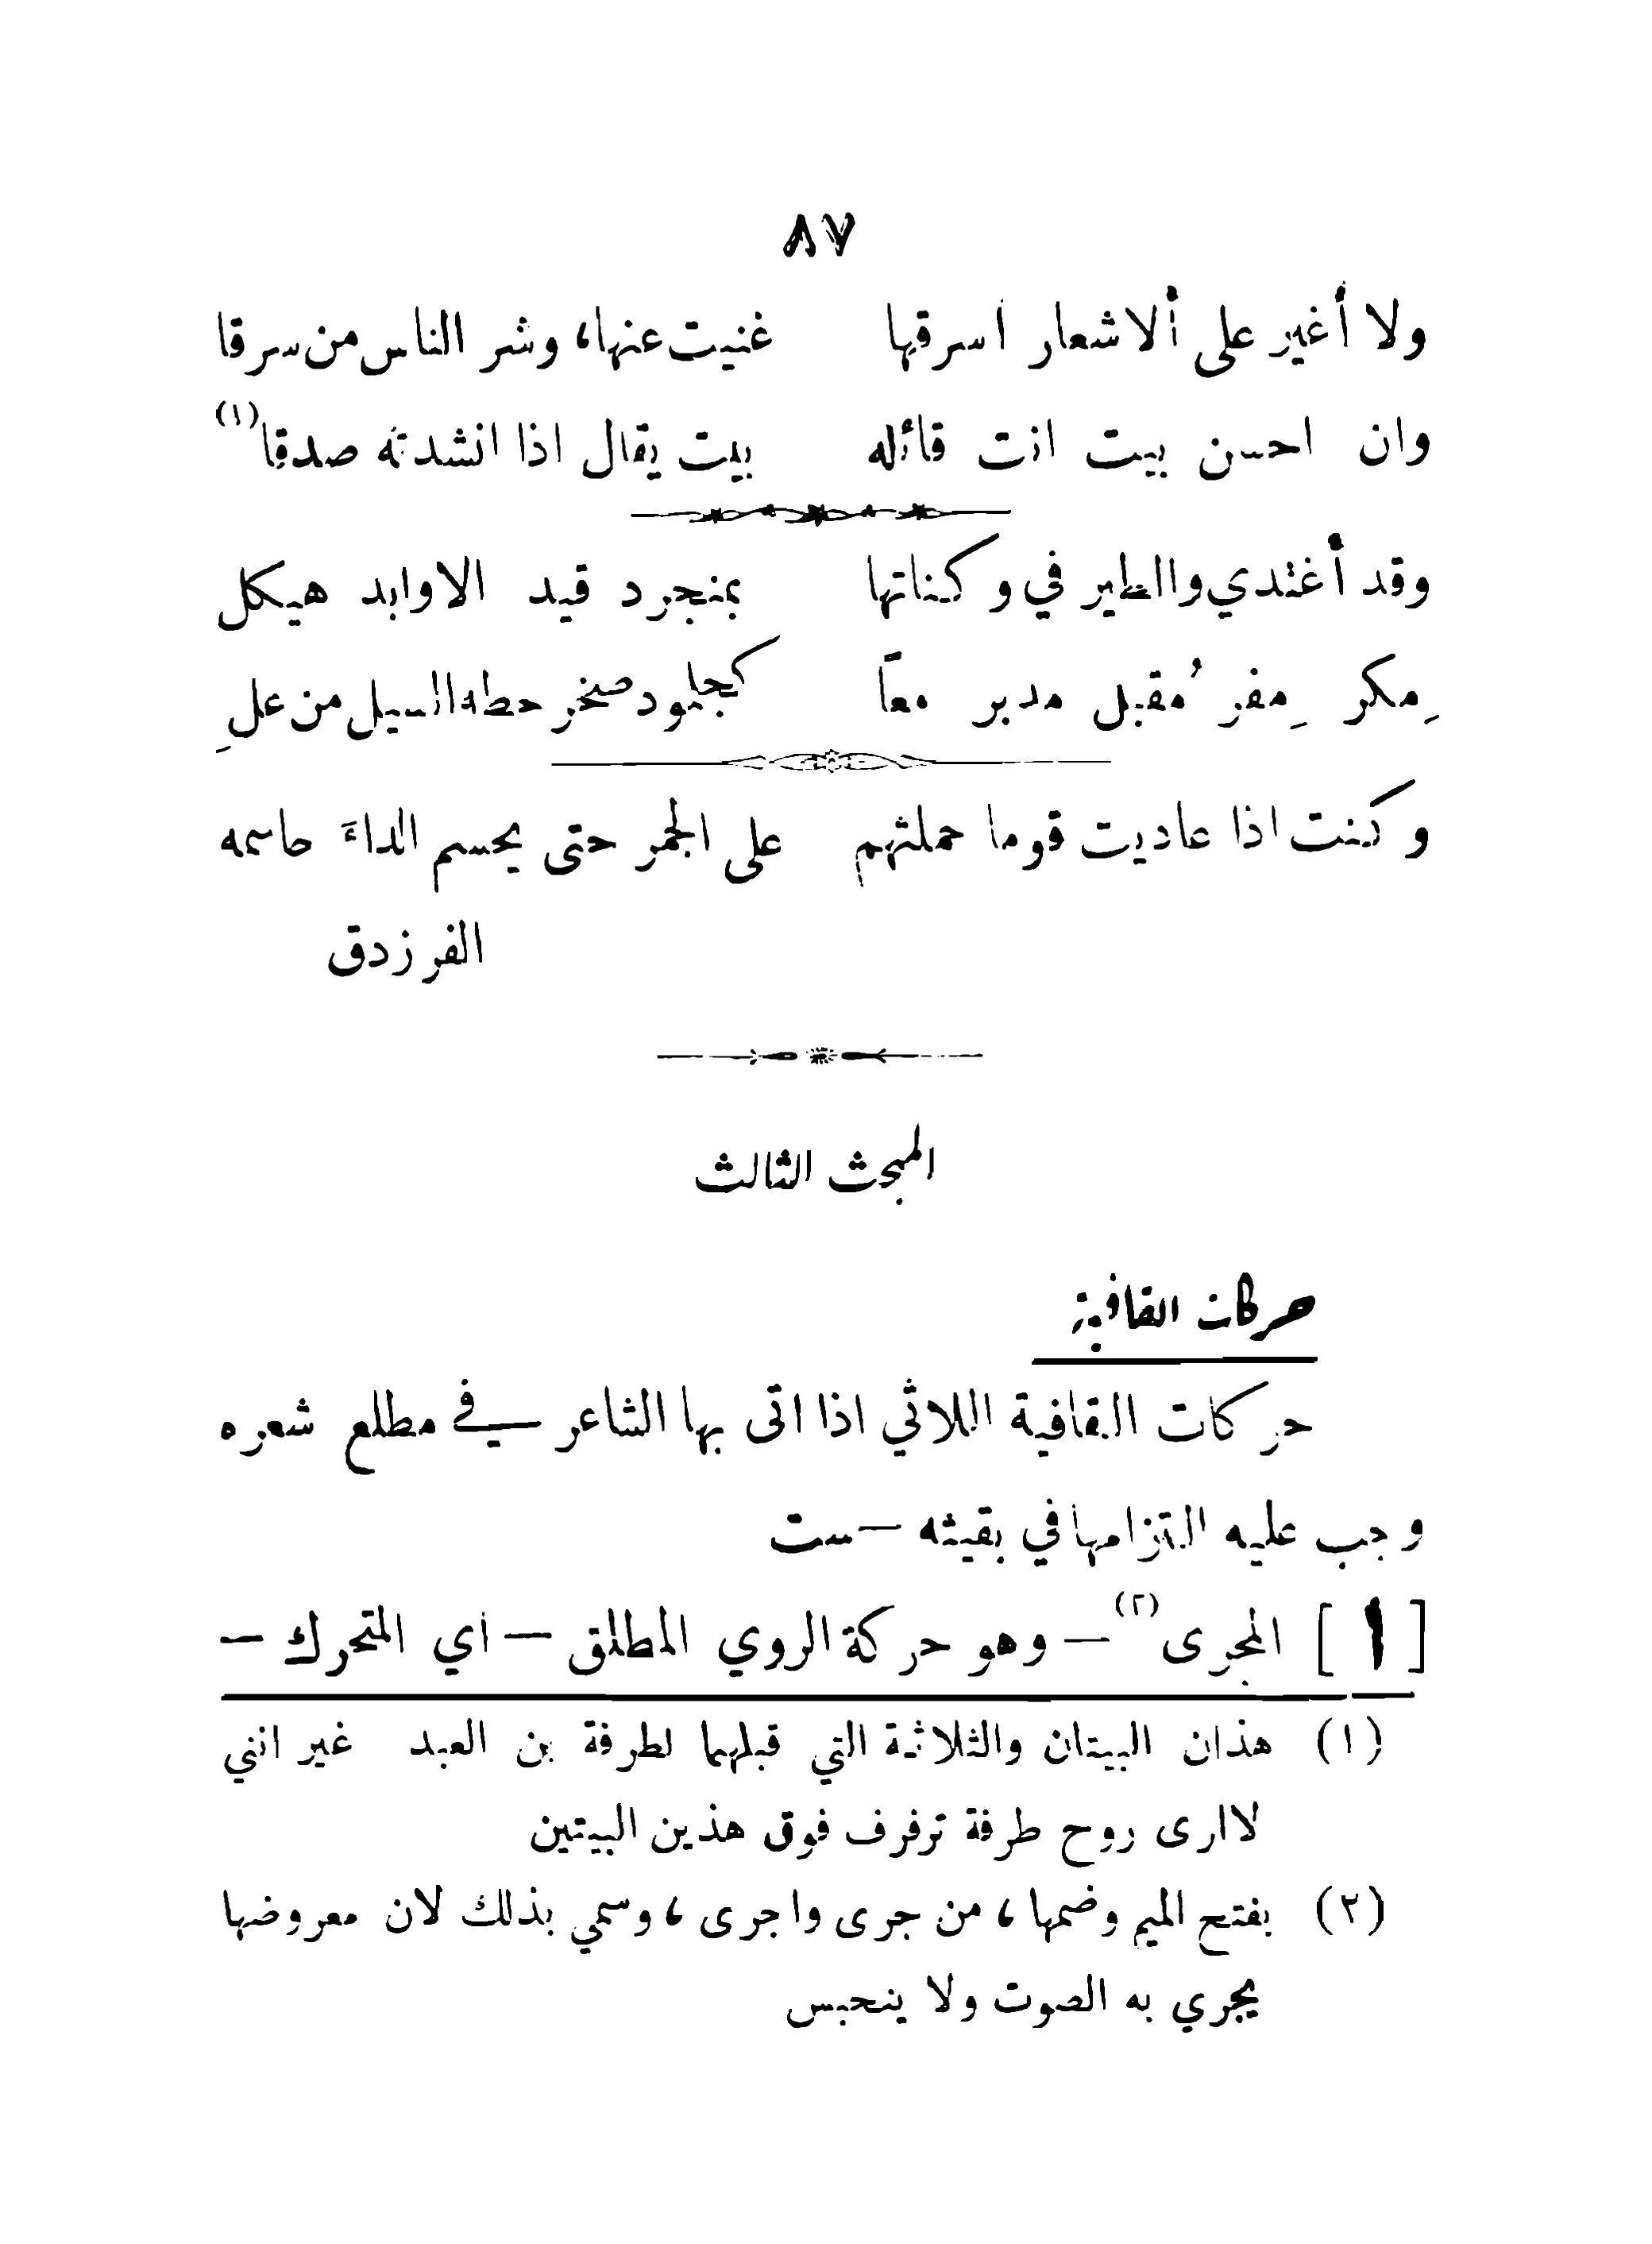 ٨٧
ولا أغير على ألاشعار اسرقها غنيت عنها، وشر الناس من سرقا
وان احسن بيت انت قائله بيت يقال اذا انشدته صدقا (١)
وقد أغتدي والطير في وكناتها بمنجرد قيد الاوابد هيكل
مِكر مِفر مُقبل مدبر معًا كجلمود صخر حطه السيل من علِ
وكنت اذا عاديت قوما حملتهم على الجمر حتى يحسم الداءَ حاسمه
الفرزدق
المبحث الثالث
حركات القافية
حركات القافية اللاتي اذا اتى بها الشاعر في مطلع شعره
وجب عليه التزامها في بقيته – ست
[١] المجرى (٢) – وهو حركة الروي المطلق – اي المتحرك –
(١) هذان البيتان والثلاثة التي قبلهما لطرفة بن العبد غير انني
لا ارى روح طرفة ترفرف فوق هذين البيتين
(٢) بفتح الميم وضمها، من جرى واجرى، وسمي بذلك لان معروضها
يجري به الصوت ولا ينحبس